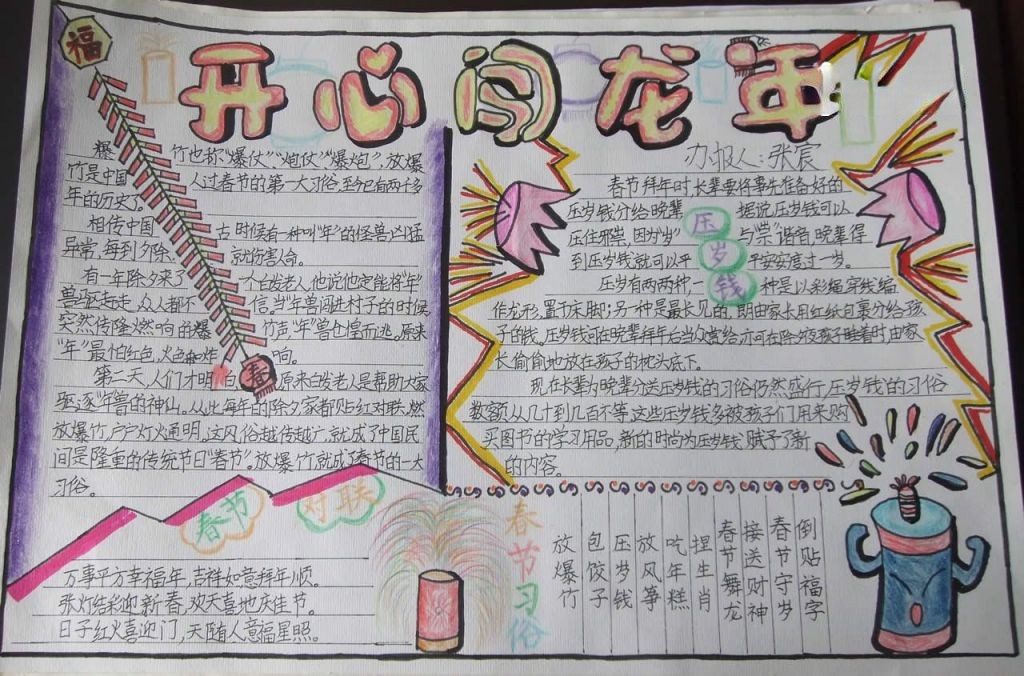 福
开心闯龙年
办报人：张宸
爆 竹也称“爆仗”、“炮仗”“爆炮”，放爆
竹是中国 人过春节的第一大习俗，至今已有两千多
年的历史了
相传中国 古时候有一种叫“年”的怪兽凶猛
异常，每到夕除， 就伤害人命。
有一年除夕来了 一个白发老人，他说他定能将“年”
兽驱赶走，众人都不 信。当“年”兽闯进村子的时候，
突然传隆火燃响的爆 竹声，“年”兽仓惶而逃。原来
“年”最怕红色，火色和炸 响。
第二天，人们才明白， 原来白发老人是帮助大家
驱逐“年”兽的神仙。从此每年的除夕家都贴红对联、燃
放爆竹，户户灯火通明。这风俗越传越广，就成了中国民
间是隆重的传统节日“春节”。放爆竹就成了春节的一大
习俗。
春
压岁钱
春节拜年时，长辈要将事先准备好的
压岁钱分给晚辈 据说压岁钱可以
压住邪祟，因为“岁” 与“祟”谐音，晚辈得
到压岁钱就可以平 平安安度过一岁。
压岁有两两种一 种是以彩绳穿线编
作龙形，置于床脚；另一种是最长见的，即由家长用红纸包裹分给孩
子的钱。压岁钱可在晚辈拜年后当众赏给，亦可在除液孩子睡着时，由家
长偷偷地放在孩子的枕头底下。
现在长辈为晚辈分送压岁钱的习俗仍然盛行，压岁钱的习俗
数额从几十到几百不等，这些压岁钱多被孩子们用来购
买图书的学习用品，新的时尚为压岁钱赋予了新
的内容。
春节 对联
万事平方幸福年，吉祥如意拜年顺。
张灯结彩迎新春，欢天喜地庆佳节。
日子红火喜迎门，天随人意福星照。
春节习俗
放爆竹
包饺子
压岁钱
放风筝
吃年糕
捏生肖
春节舞龙
接送财神
春节守岁
倒贴福字